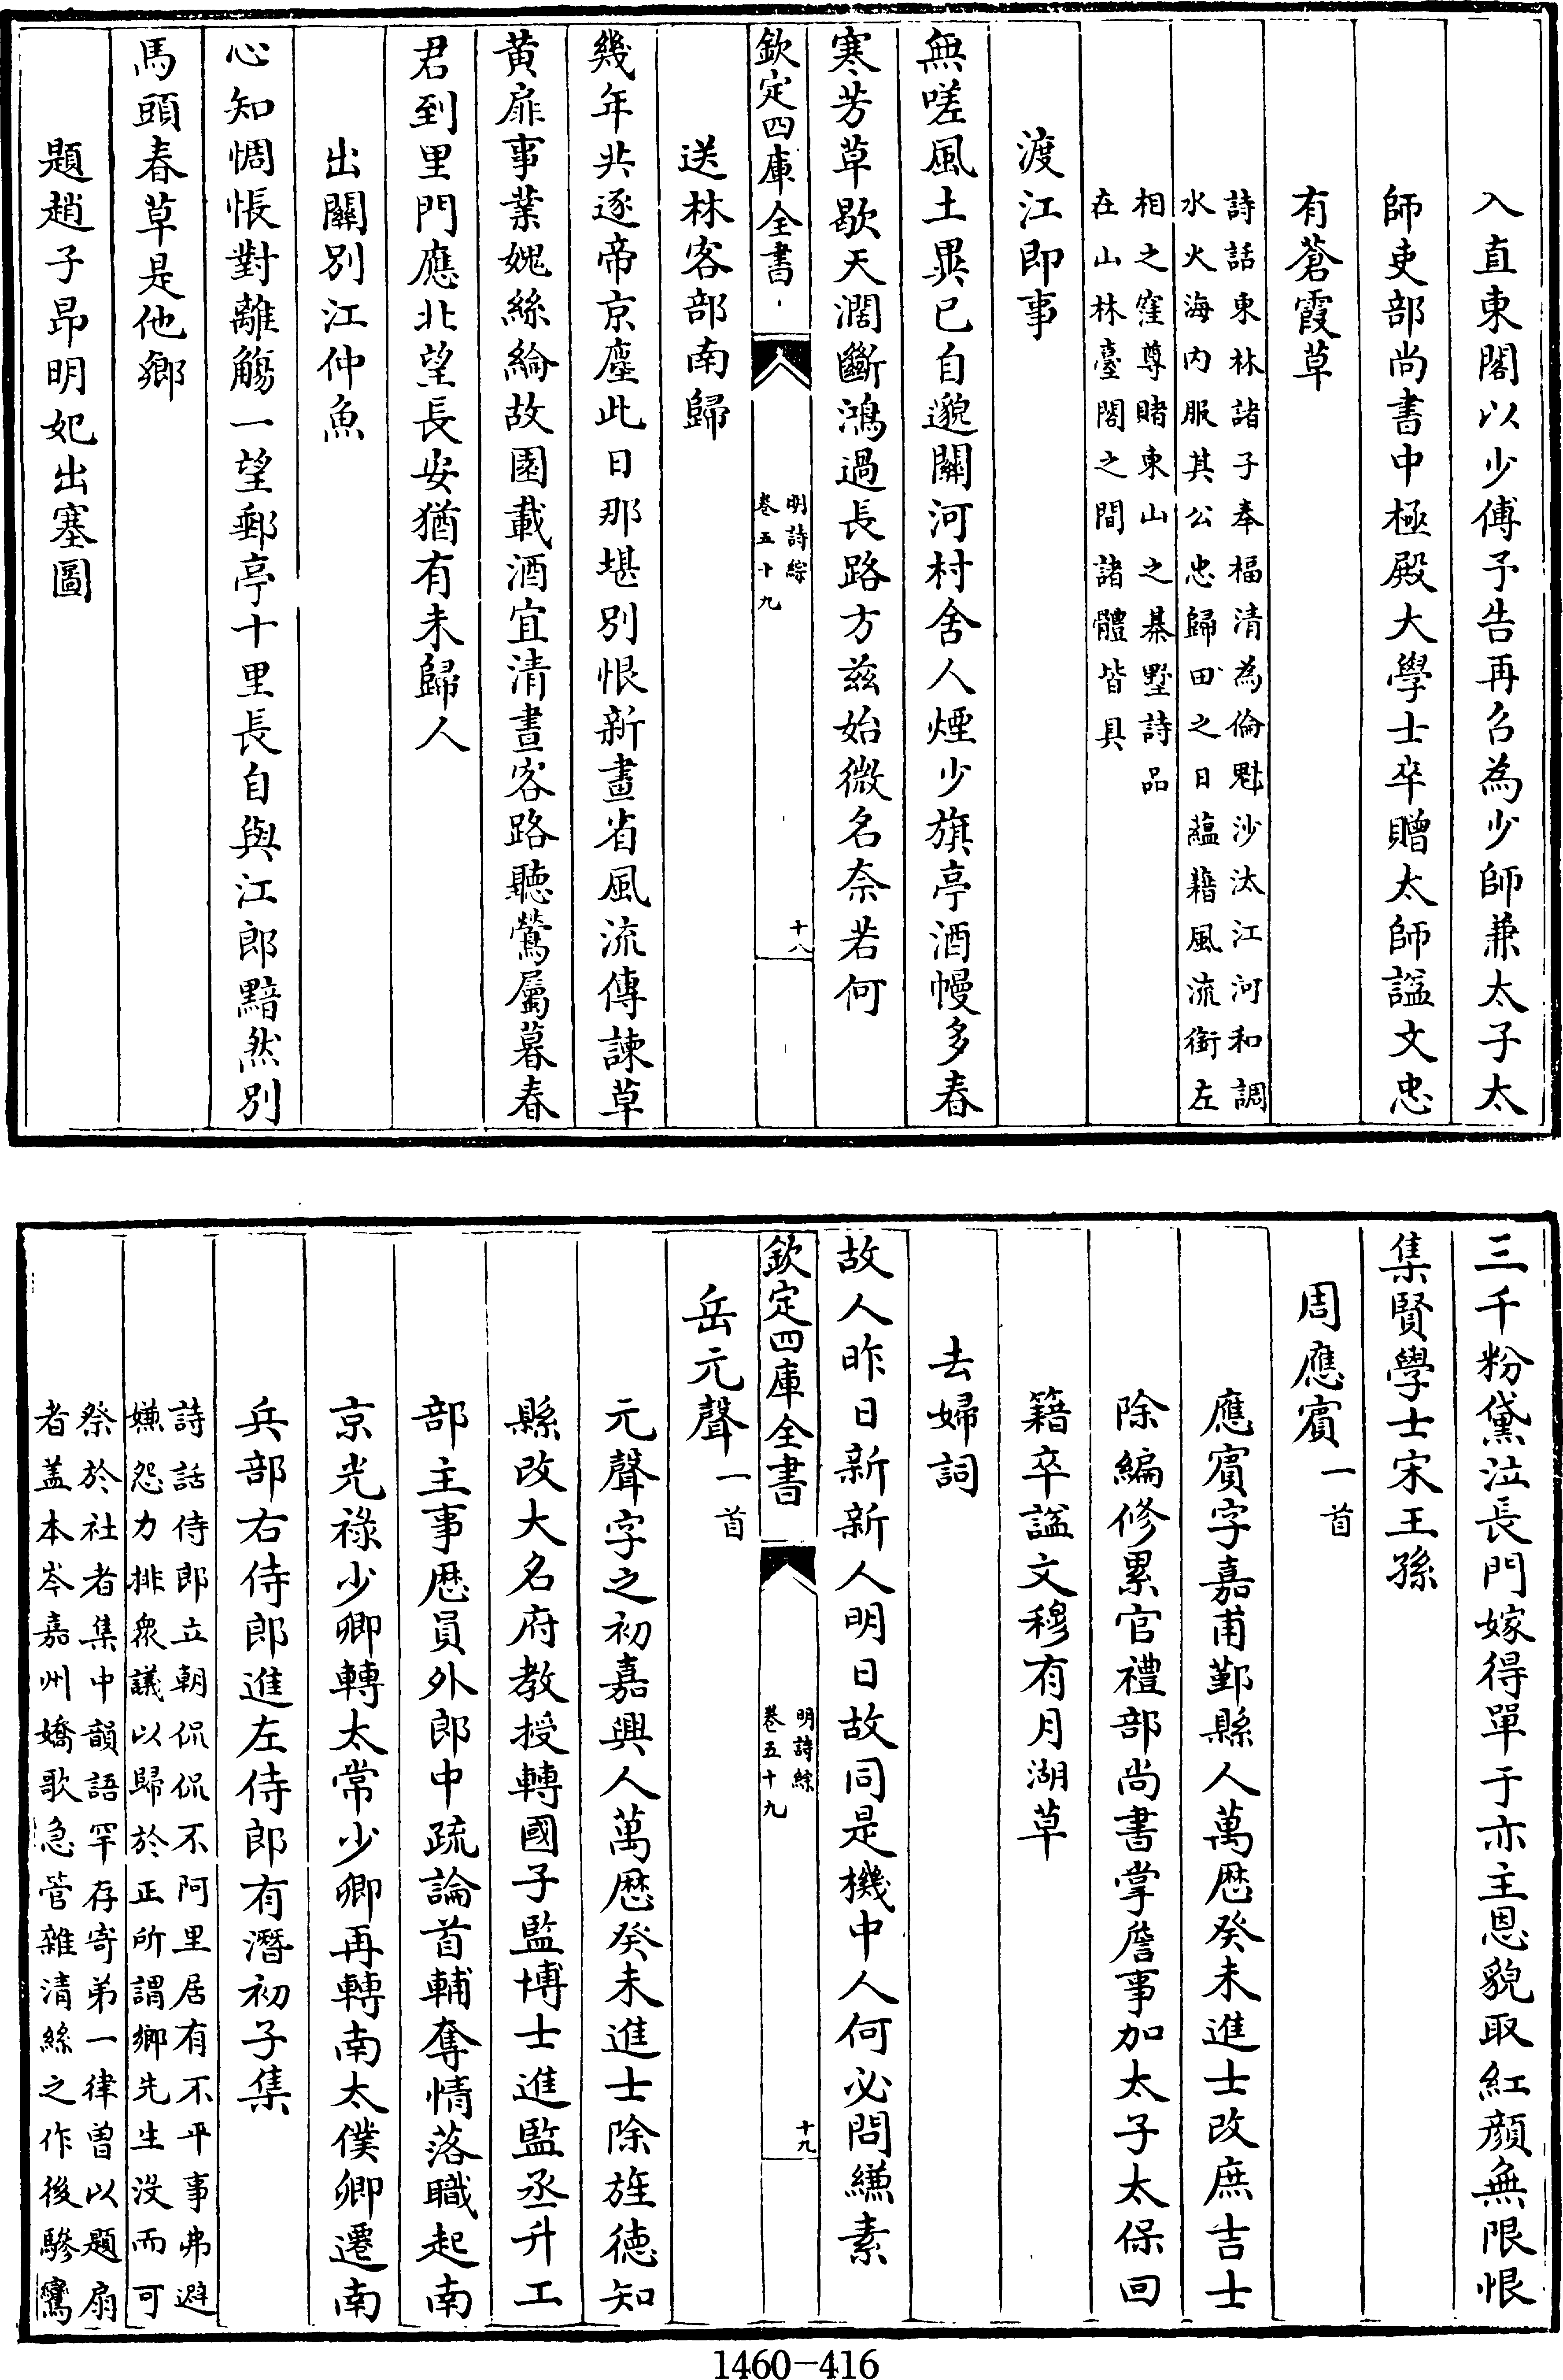 入直東閣以少傅予告再召為少師兼太子太
師吏部尚書中極殿大學士卒贈太師諡文忠
有蒼霞草
詩話東林諸子奉福清為倫魁沙汰江河和調
水火海内服其公忠歸田之日蘊藉風流銜左
相之窪尊賭東山之棊墅詩品
在山林臺閣之間諸體皆具
渡江即事
無嗟風土異已自邈關河村舍人煙少旗亭酒幔多春
寒芳草歇天濶斷鴻過長路方兹始微名奈若何
欽定四庫全書
明詩綜
卷五十九
十八
送林客部南歸
幾年共逐帝京塵此日那堪別恨新畫省風流傳諫草
黄扉事業媿絲綸故園載酒宜清晝客路聽鶯屬暮春
君到里門應北望長安猶有未歸人
出關別江仲魚
心知惆悵對離觴一望郵亭十里長自與江郎黯然別
馬頭春草是他鄉
題趙子昂明妃出塞圖
三千粉黛泣長門嫁得單于亦主恩貌取紅顔無限恨
集賢學士宋王孫
周應賓一首
應賓字嘉甫鄞縣人萬厯癸未進士改庶吉士
除編修累官禮部尚書掌詹事加太子太保回
籍卒諡文穆有月湖草
去婦詞
故人昨日新新人明日故同是機中人何必問縑素
欽定四庫全書
明詩綜
卷五十九
十九
岳元聲一首
元聲字之初嘉興人萬厯癸未進士除旌德知
縣改大名府教授轉國子監博士進監丞升工
部主事厯員外郎中疏論首輔奪情落職起南
京光祿少卿轉太常少卿再轉南太僕卿遷南
兵部右侍郎進左侍郎有潛初子集
詩話侍郎立朝侃侃不阿里居有不平事弗避
嫌怨力排衆議以歸於正所謂鄉先生没而可
祭於社者集中韻語罕存寄弟一律曽以題扇
者盖本岑嘉州嬌歌急管雜清絲之作後驂鸞
1460-416